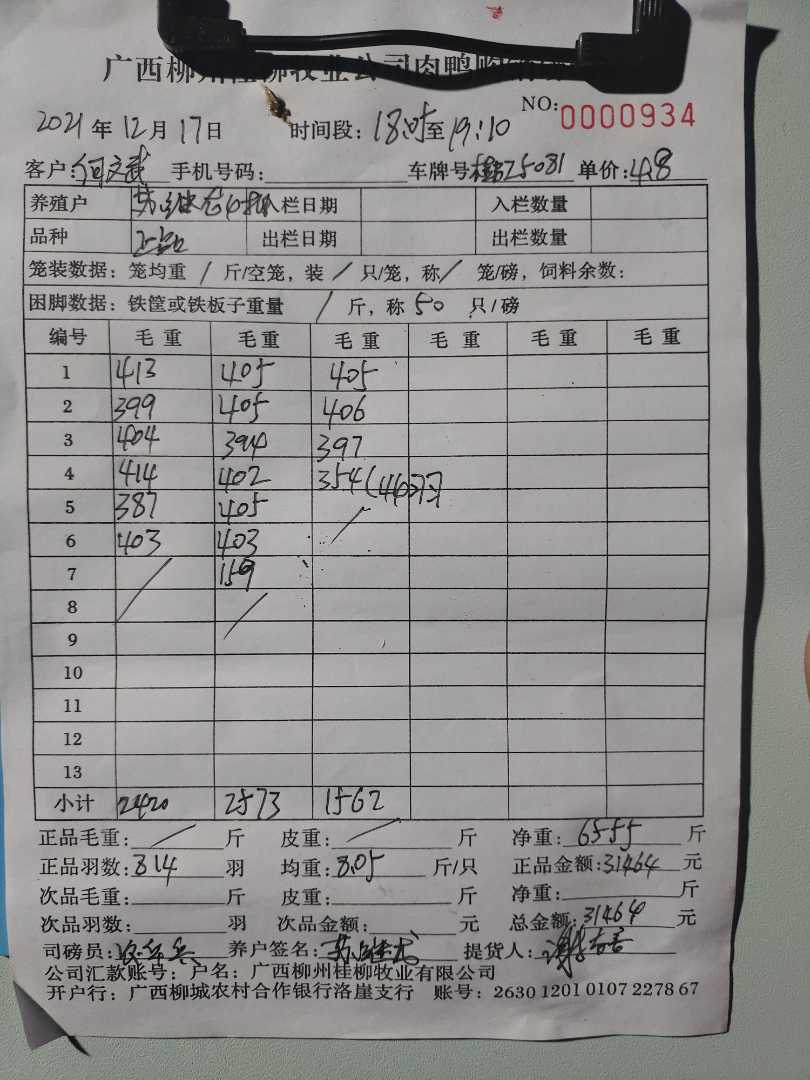 广西柳州桂柳牧业公司肉鸭购销
NO: 0000934
2021年12月17日 时间段: 18时至19:10
客户: 何文武 手机号码: 车牌号 25081 单价: 4.8
养殖户 苏继 入栏日期 入栏数量
品种 出栏日期 出栏数量
笼装数据: 笼均重 / 斤/空笼, 装 / 只/笼, 称 / 笼/磅, 饲料余数:
困脚数据: 铁筐或铁板子重量 / 斤, 称 50 只/磅
编号 毛重 毛重 毛重 毛重 毛重 毛重
1 413 405 405
2 399 405 406
3 404 394 397
4 414 402 354(46羽)
5 387 405 /
6 403 403
7 / 159
8 /
9
10
11
12
13
小计 2420 2573 1562
正品毛重: / 斤 皮重: / 斤 净重: 6555 斤
正品羽数: 814 羽 均重: 8.05 斤/只 正品金额: 31464 元
次品毛重: 斤 皮重: 斤 净重: 斤
次品羽数: 羽 次品金额: 元 总金额: 31464 元
司磅员: 养户签名: 苏继 提货人: 谢
公司汇款账号: 户名: 广西柳州桂柳牧业有限公司
开户行: 广西柳城农村合作银行洛崖支行 账号: 2630 1201 0107 2278 67